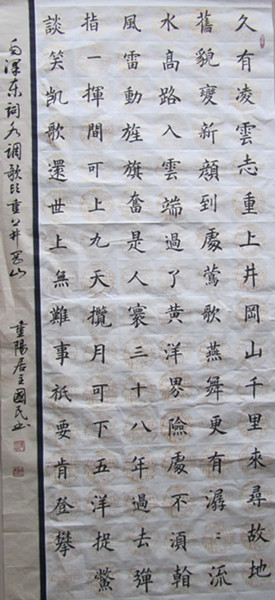 久有凌雲志重上井岡山千里來尋故地
舊貌變新顏到處鶯歌燕舞更有潺:流
水高路入雲端過了黃洋界險處不湏
風雷動旌旗奮是人寰三十八年過去彈
指一揮間可上九天攬月可下五洋捉鱉
談笑凱歌還世上無難事祇要肯登攀
毛澤東詞水調歌頭重上井岡山
重陽居王國民書